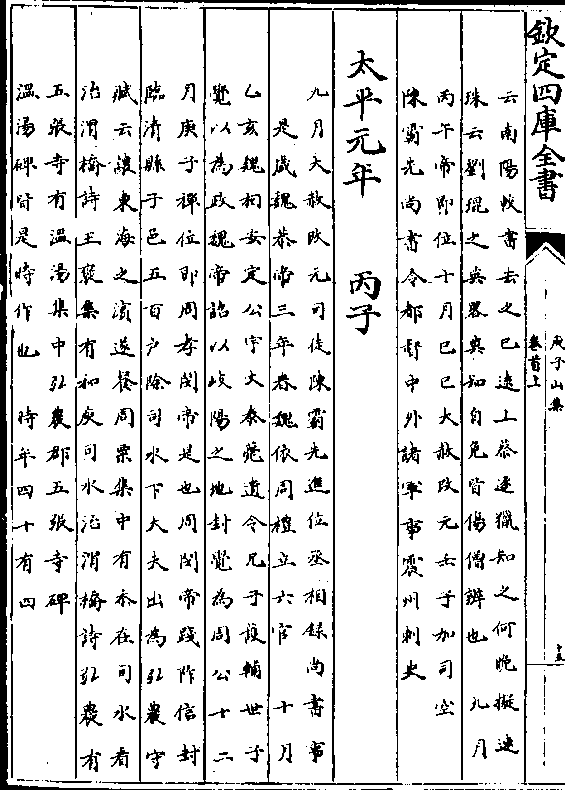 欽定四庫全書
庾子山集
卷首上
十五
云南陽校書去之已遠上蔡逐獵知之何晚擬連
珠云劉琨之英畧奥知自免皆傷僧辯也　九月
丙午帝即位十月己巳大赦改元壬子加司空
陳霸先尚書令都督中外諸軍事震州刺史
太平元年　丙子
九月大赦改元司徒陳霸先進位丞相録尚書事
是歲魏恭帝三年春魏依周禮立六官　十月
乙亥魏祠安定公宇文泰薨遺令兄子護輔世子
覺以為政魏帝詔以岐陽之地封覺為周公十二
月庚子禪位即周孝閔帝是也周閔帝踐阼信封
臨清縣子邑五百户除司水下大夫出為弘農守
賦云讓東海之濱遂餐周粟集中有忝在司水看
治渭橋詩王襃集有和庾司水治渭橋詩弘農有
五張寺有温湯集中弘農郡五張寺碑
温湯碑皆是時作也　時年四十有四